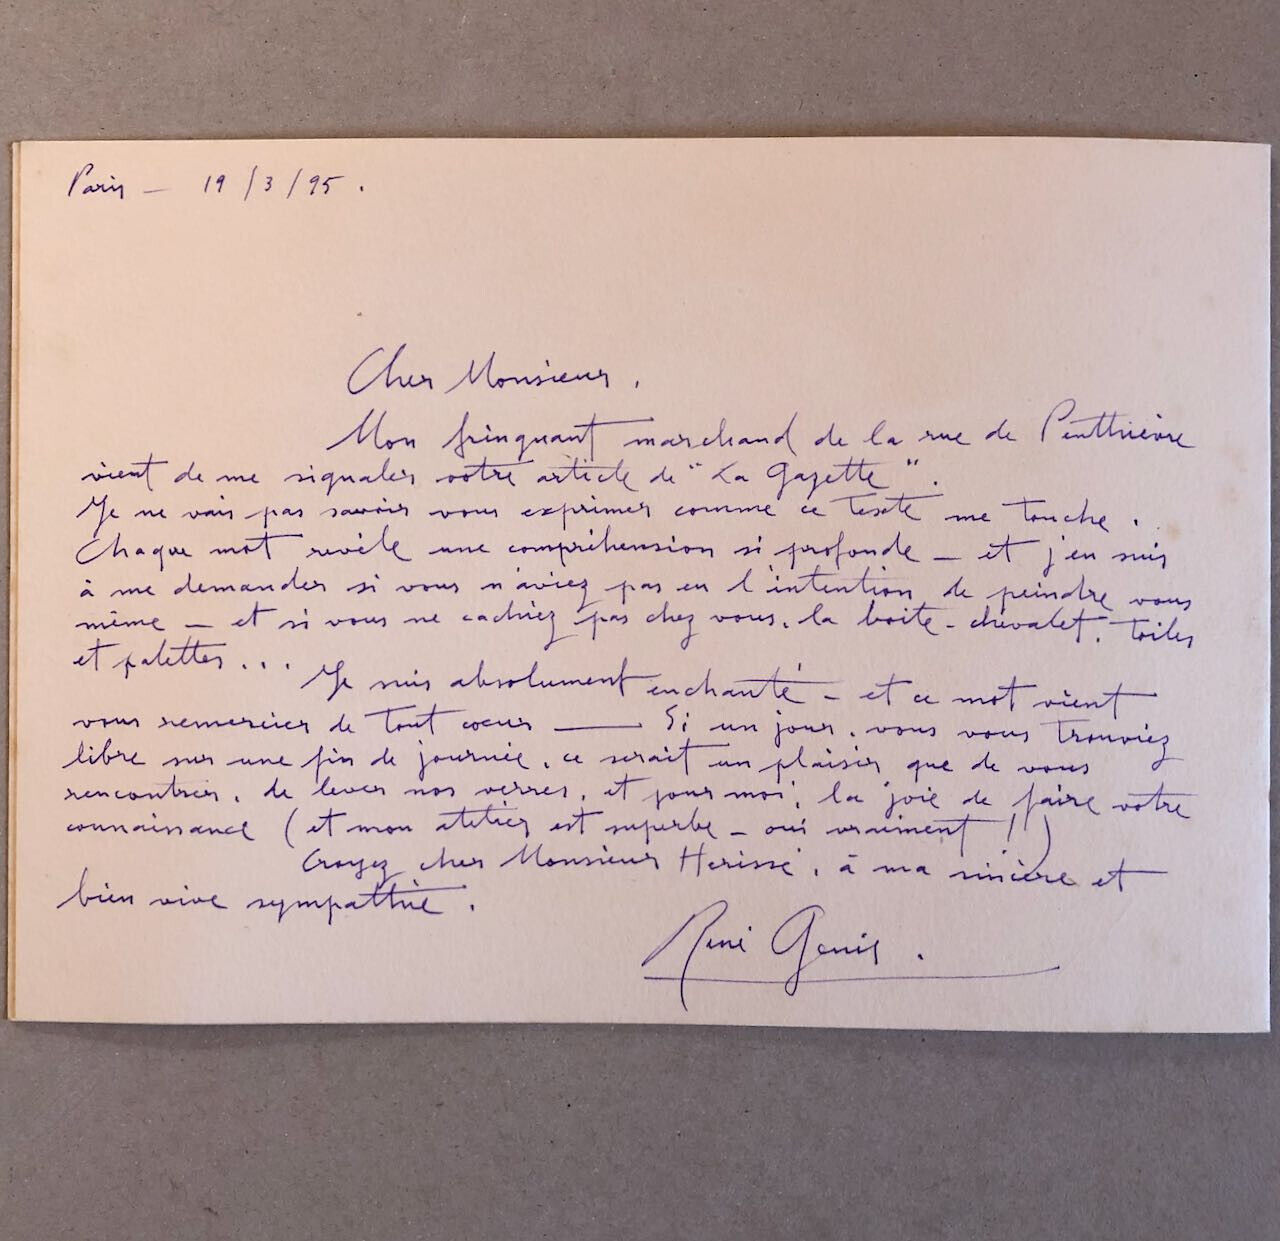 Paris — 19/3/95.
Cher Monsieur,
Mon fringuant marchand de la rue de Penthièvre
vient de me signaler votre article de "La Gazette".
Je ne vais pas savoir vous exprimer comme ce texte me touche.
Chaque mot revèle une compréhension si profonde — et j'en suis
à me demander si vous n'aviez pas eu l'intention de peindre vous
même — et si vous ne cachiez pas chez vous, la boite-chevalet, toiles
et palettes...
Je suis absolument enchanté — et ce mot vient
vous remercier de tout cœur —— Si un jour, vous vous trouviez
libre sur une fin de journée, ce serait un plaisir que de vous
rencontrer, de lever nos verres, et pour moi, la joie de faire votre
connaissance (et mon atelier est superbe — oui vraiment !)
Croyez cher Monsieur Herissé, à ma sincère et
bien vive sympathie.
René Genis.